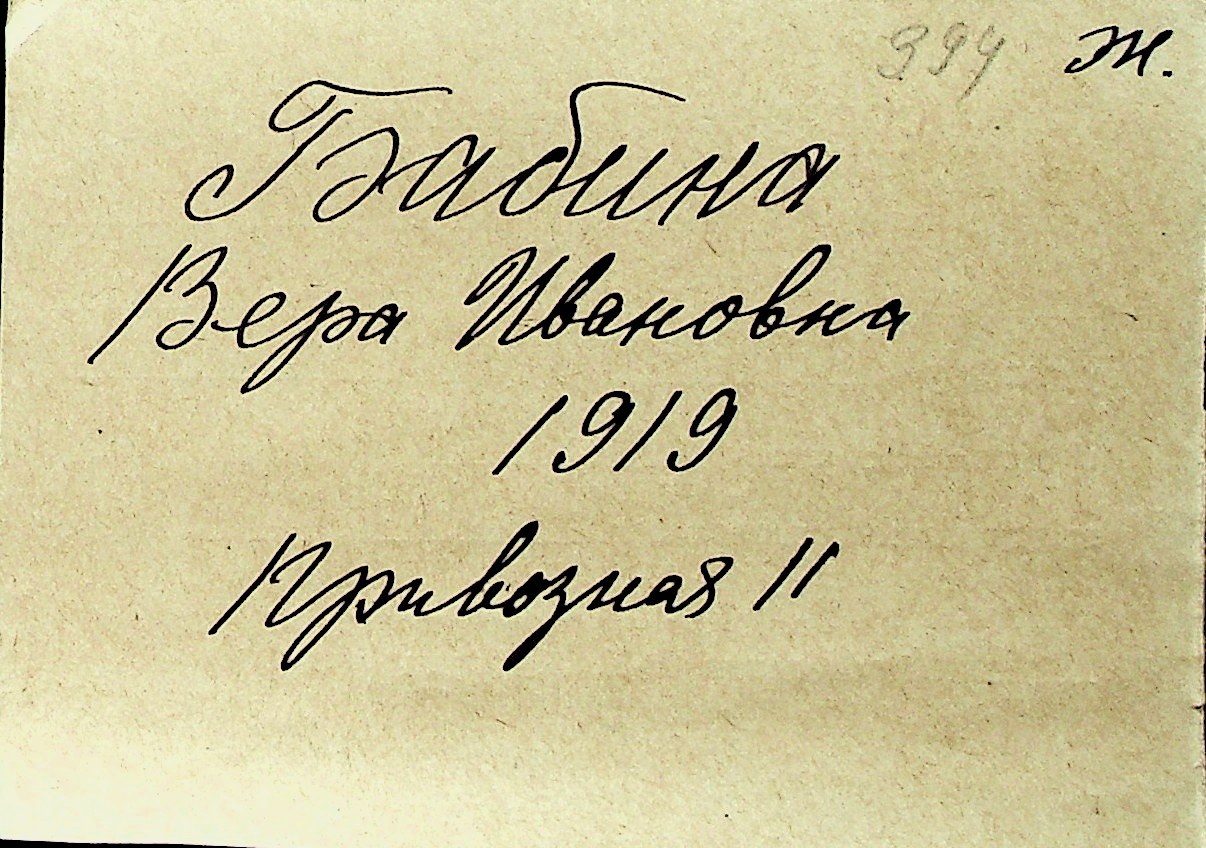 394 ж.
Бабина
Вера Ивановна
1919
Привозная 11